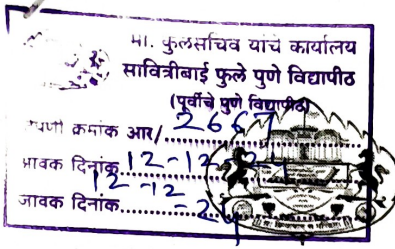 मा. कुलसचिव यांचे कार्यालय
सावित्रीबाई फुले पुणे विद्यापीठ
(पूर्वीचे पुणे विद्यापीठ)
क्रमांक आर/ 2667
आवक दिनांक 12-12-2
12-12
जावक दिनांक -2